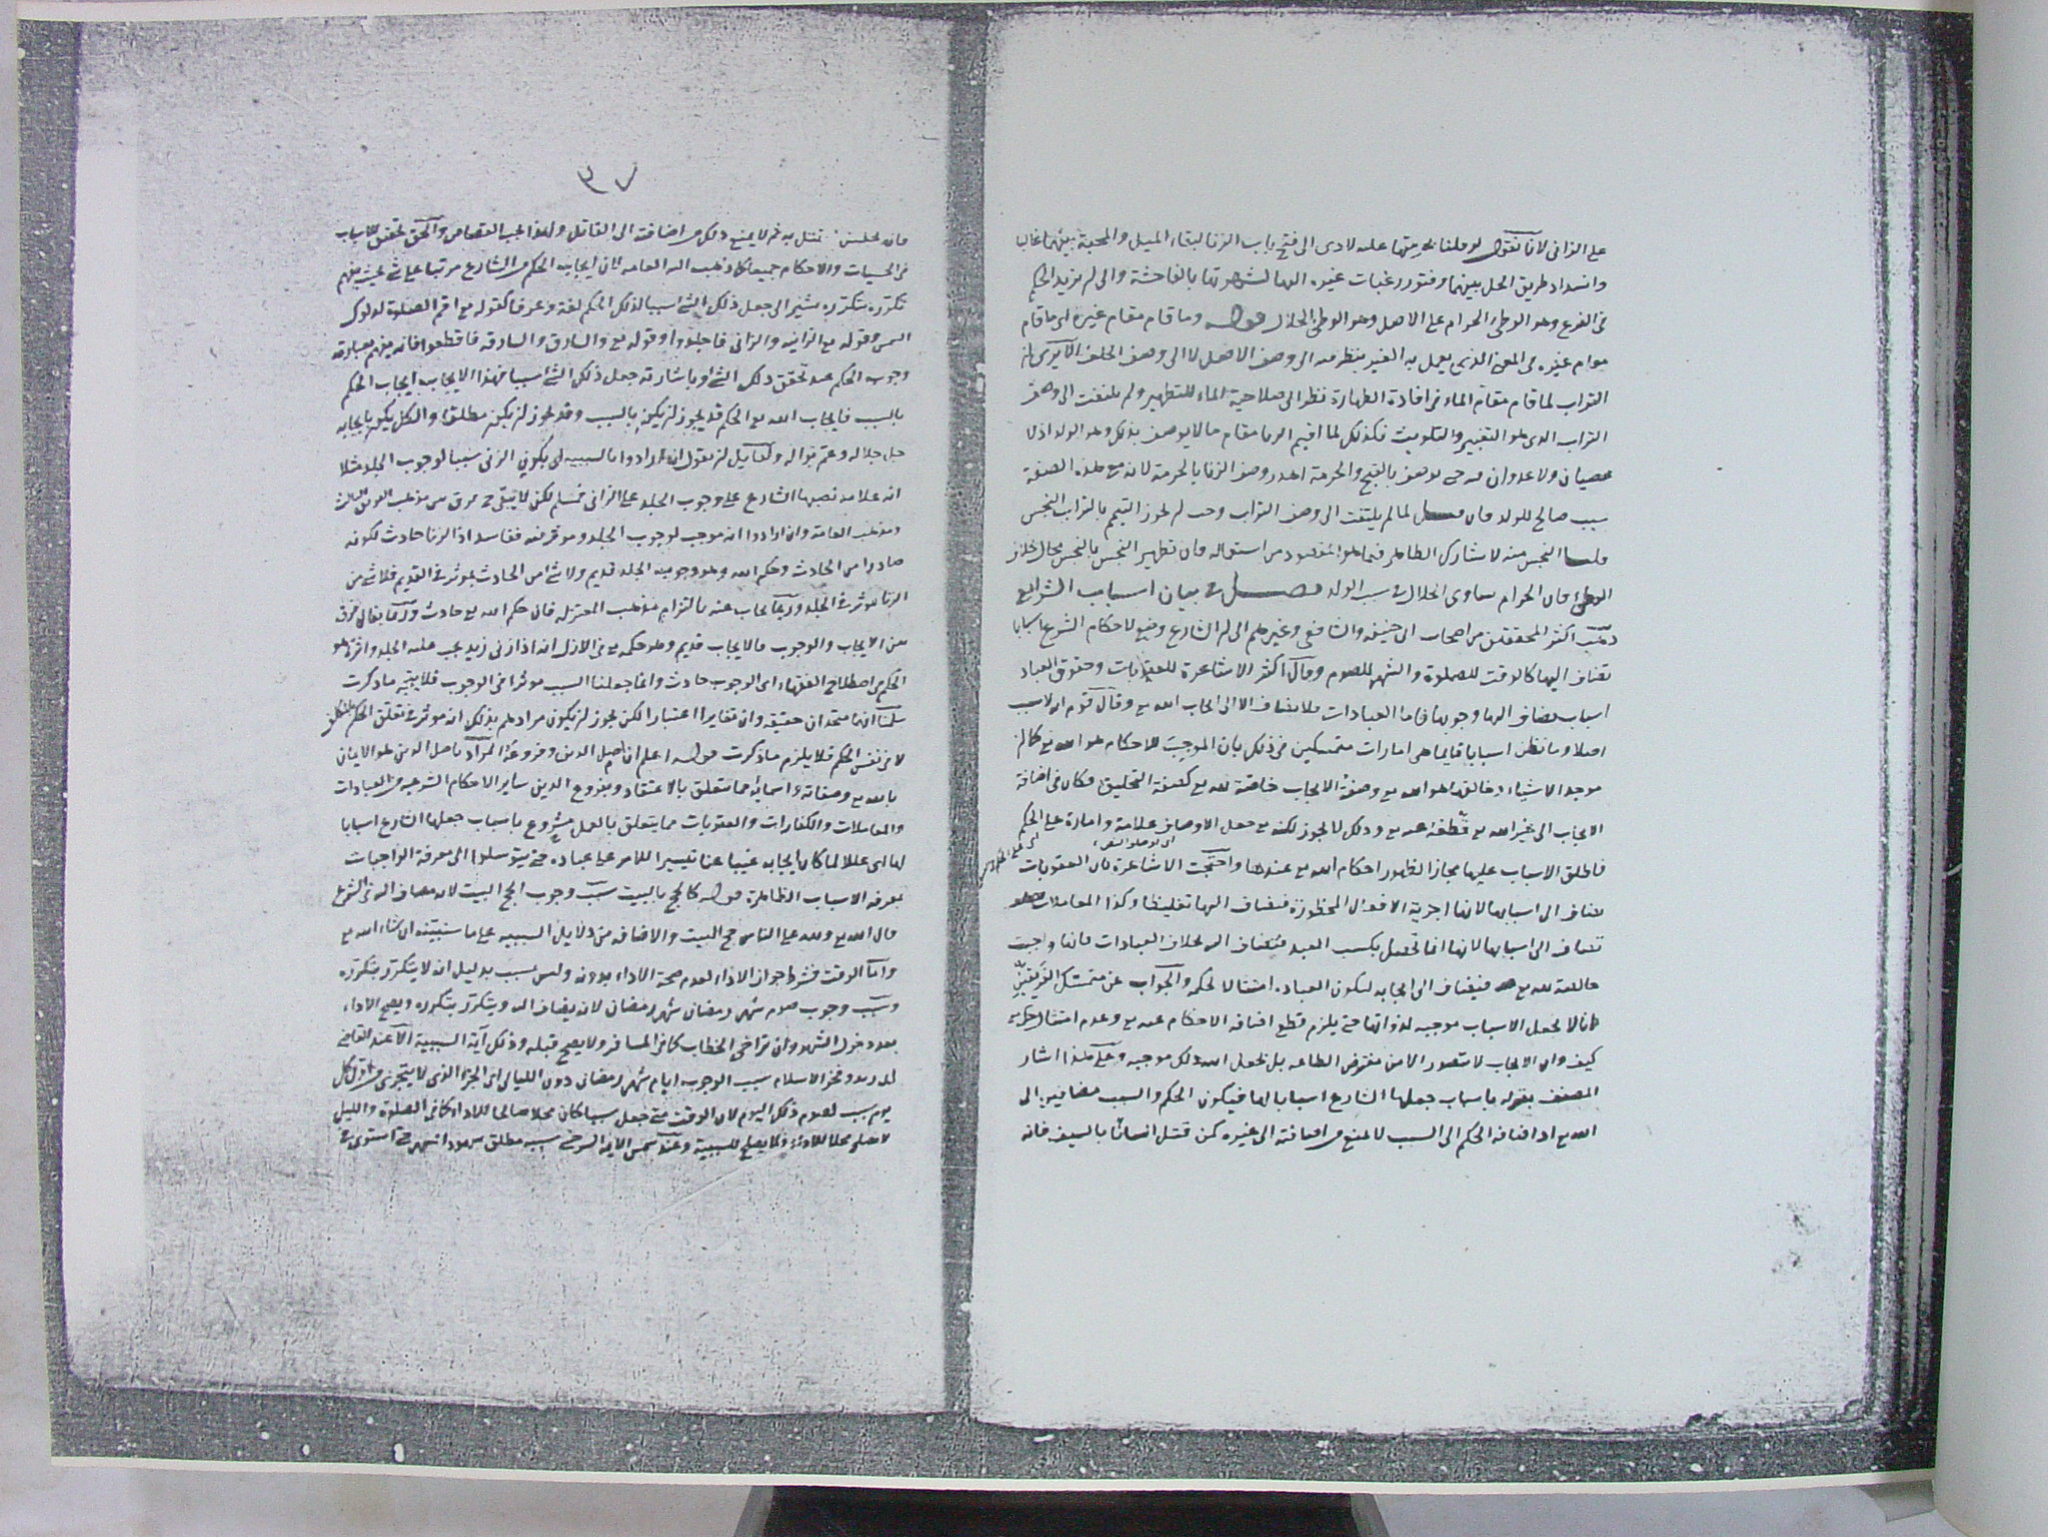 على الزانى لانا نقول لو قلنا بحرمتها عليه لادى الى فتح باب الزنا لبقاء الميل والمحبة بينهما غالبا
وانسداد طريق الحل بينهما وفتور رغبات غيره اليها لشهرتها بالفاحشة والى لم مزيد الحكم
فى الفرع وهو الوطئ الحرام على الاصل وهو الوطئ الحلال قوله وما قام مقام غيره اى ما قام
مقام غيره فى المعنى الذى يعمل به الغير ينظر فيه الى وصف الاصل لا الى وصف الخلف الا يرى ان
التراب لما قام مقام الماء فى افادة الطهارة نظر الى صلاحية الماء للتطهير ولم يلتفت الى وصف
التراب الذى هو التغبير والتلويث فكذلك لما اقيم الزنا مقام ما لا يوصف بذلك وهو الولد اذ لا
عصيان ولا عدوان فيه حتى يوصف بالقبح والحرمة اهدر وصف الزنا بالحرمة لانه مع هذه الصفة
سبب صالح للولد فان قيل لما لم يلتفت الى وصف التراب وجب ان يجوز التيمم بالتراب النجس
قلنا النجس منه لا يشارك الطاهر فيما هو المقصود من استعماله فان تطهير النجس بالنجس محال بخلاف
الوطئ فان الحرام يساوى الحلال فى سبب الولد فصل فى بيان اسباب الشرايع
ذهب اكثر المحققين من اصحاب ابى حنيفه والشافعى وغيرهم الى ان الشارع وضع لاحكام الشرع اسبابا
تضاف اليها كالوقت للصلوة والشهر للصوم وقال اكثر الاشاعرة للعقوبات وحقوق العباد
اسباب يضاف اليها وجوبها فاما العبادات فلا يضاف الا الى ايجاب الله تع وقال قوم ان لا سبب
اصلا وما نظن اسبابا فانما هى امارات متمسكين فى ذلك بان الموجب للاحكام هو الله تع كما ان
موجد الاشياء وخالقها هو الله تع وصفة الايجاب خاصة لله تع كصفة التخليق فكان فى اضافة
الايجاب الى غير الله تع قطعه عنه تع وذلك لا يجوز لكنه تع جعل الاوصاف علامة وامارة على الحكم
فاطلق الاسباب عليها مجازا لظهور احكام الله تع عندها واحتجت الاشاعرة بان العقوبات
يضاف الى اسبابها لانها اجزية الافعال المحظورة فيضاف اليها تغليظا وكذا المعاملات
تضاف الى اسبابها لانها انما تحصل بكسب العبد فتضاف اليه بخلاف العبادات فانها وجبت
خالصة لله تع فيضاف الى ايجابه ليكون العباده امتثالا لحكمه والجواب عن متمسك الفريقين
انا لا نجعل الاسباب موجبه لذواتها حتى يلزم قطع اضافه الاحكام عنه تع وعدم امتثال حكمه تع
كيف وان الايجاب لا يتصور الا من مفترض الطاعه بل نجعل الله ذلك موجبه وعلى هذا اشار
المصنف بقوله باسباب جعلها الشارع اسبابا لها فيكون الحكم والسبب مضافين الى
الله تع اذ اضافه الحكم الى السبب لا تمنع من اضافته الى غيره كمن قتل انسانا بالسيف فانه
٣٧
قتل به ثم لا يمنع ذلك من اضافته الى القاتل ولهذا يجب القصاص والحق تحقق الاسباب
فى الحسيات والاحكام جميعا كما ذهب اليه العامه لان ايجاب الحكم من الشارع مرتبا على شئ بحيث يفهم
تكرره بتكرره يشير الى جعل ذلك الشئ سببا لذلك الحكم لغة وعرفا كقوله تع اقم الصلوة لدلوك
الشمس وقوله تع الزانيه والزانى فاجلدوا وقوله تع والسارق والسارقه فاقطعوا فانه يفهم بعبارته
وجوب الحكم عند تحقق ذلك الشئ وباشارته جعل ذلك الشئ سببا فهذا الايجاب ايجاب الحكم
بالسبب فايجاب الله تع الحكم قد يجوز ان يكون بالسبب وقد يجوز ان يكون مطلقا والكل يكون بايجابه
جل جلاله وعم نواله ولقايل ان يقول ان ارادوا بالسببيه اى بكون الزنى سببا لوجوب الجلد مثلا
انه علامه نصبها الشارع على وجوب الجلد على الزانى فمسلم لكن لا يبقى ح فرق بين مذهب الفريق الثالث
ومذهب العامه وان ارادوا انه موجب لوجوب الجلد وموثر فيه ففاسد اذ الزنا حادث لكونه
صادرا من الحادث وحكم الله وهو وجوب الجلد قديم ولا شئ من الحادث بموثر فى القديم فلا شئ من
الزنا بموثر فى الجلد وربما يجاب عنه بالتزام مذهب المعتزله فان حكم الله تع حادث وربما يقال فرق
بين الايجاب والوجوب فالايجاب قديم وهو حكمه تع فى الازل انه اذا زنى زيد يجب عليه الجلد واثره هو
الحكم فى اصطلاح الفقهاء اى الوجوب حادث وانما جعلنا السبب موثرا فى الوجوب فلا يتجه ما ذكرت
سلمنا انهما متحدان حقيقه وان تغايرا اعتبارا لكن يجوز ان يكون مرادهم بذلك انه موثر فى تعلق الحكم
لا فى نفس الحكم فلا يلزم ما ذكرت قوله اعلم ان اصل الدين وفروعه المراد باصل الدين هو الايمان
بالله تع وصفاته واسمائه مما يتعلق بالاعتقاد وبفروع الدين ساير الاحكام الشرعيه من العبادات
والمعاملات والكفارات والعقوبات مما يتعلق بالعمل مشروع باسباب جعلها الشارع اسبابا
لها اى عللا لما كان ايجابه غيبا عنا تيسيرا للامر على عباده حتى يتوسلوا الى معرفة الواجبات
بمعرفه الاسباب الظاهرة قوله كالحج بالبيت سبب وجوب الحج البيت لانه مضاف اليه فى الشرع
قال الله تع ولله على الناس حج البيت والاضافه من دلايل السببيه على ما سنبينه ان شاء الله تع
واما الوقت فشرط جواز الاداء لعدم صحة الاداء بدونه وليس بسبب بدليل انه لا يتكرر بتكرره
وسبب وجوب صوم شهر رمضان شهر رمضان لانه يضاف اليه ويتكرر بتكرره ويصح الاداء
بعد دخول الشهر وان تراخى الخطاب كما فى المسافر ولا يصح قبله وذلك آية السببية الا عند القاضى
ابى زيد وفخر الاسلام سبب الوجوب ايام شهر رمضان دون الليالى اى الجزء الذى لا يتجزى من اول كل
يوم سبب لصوم ذلك اليوم لان الوقت متى جعل سببا كان محلا صالحا للاداء كما فى الصلوة والليل
لا يصلح محلا للاداء فلا يصلح للسببية وعند شمس الائمة السرخسى سببه مطلق شهود الشهر حتى استوى فى